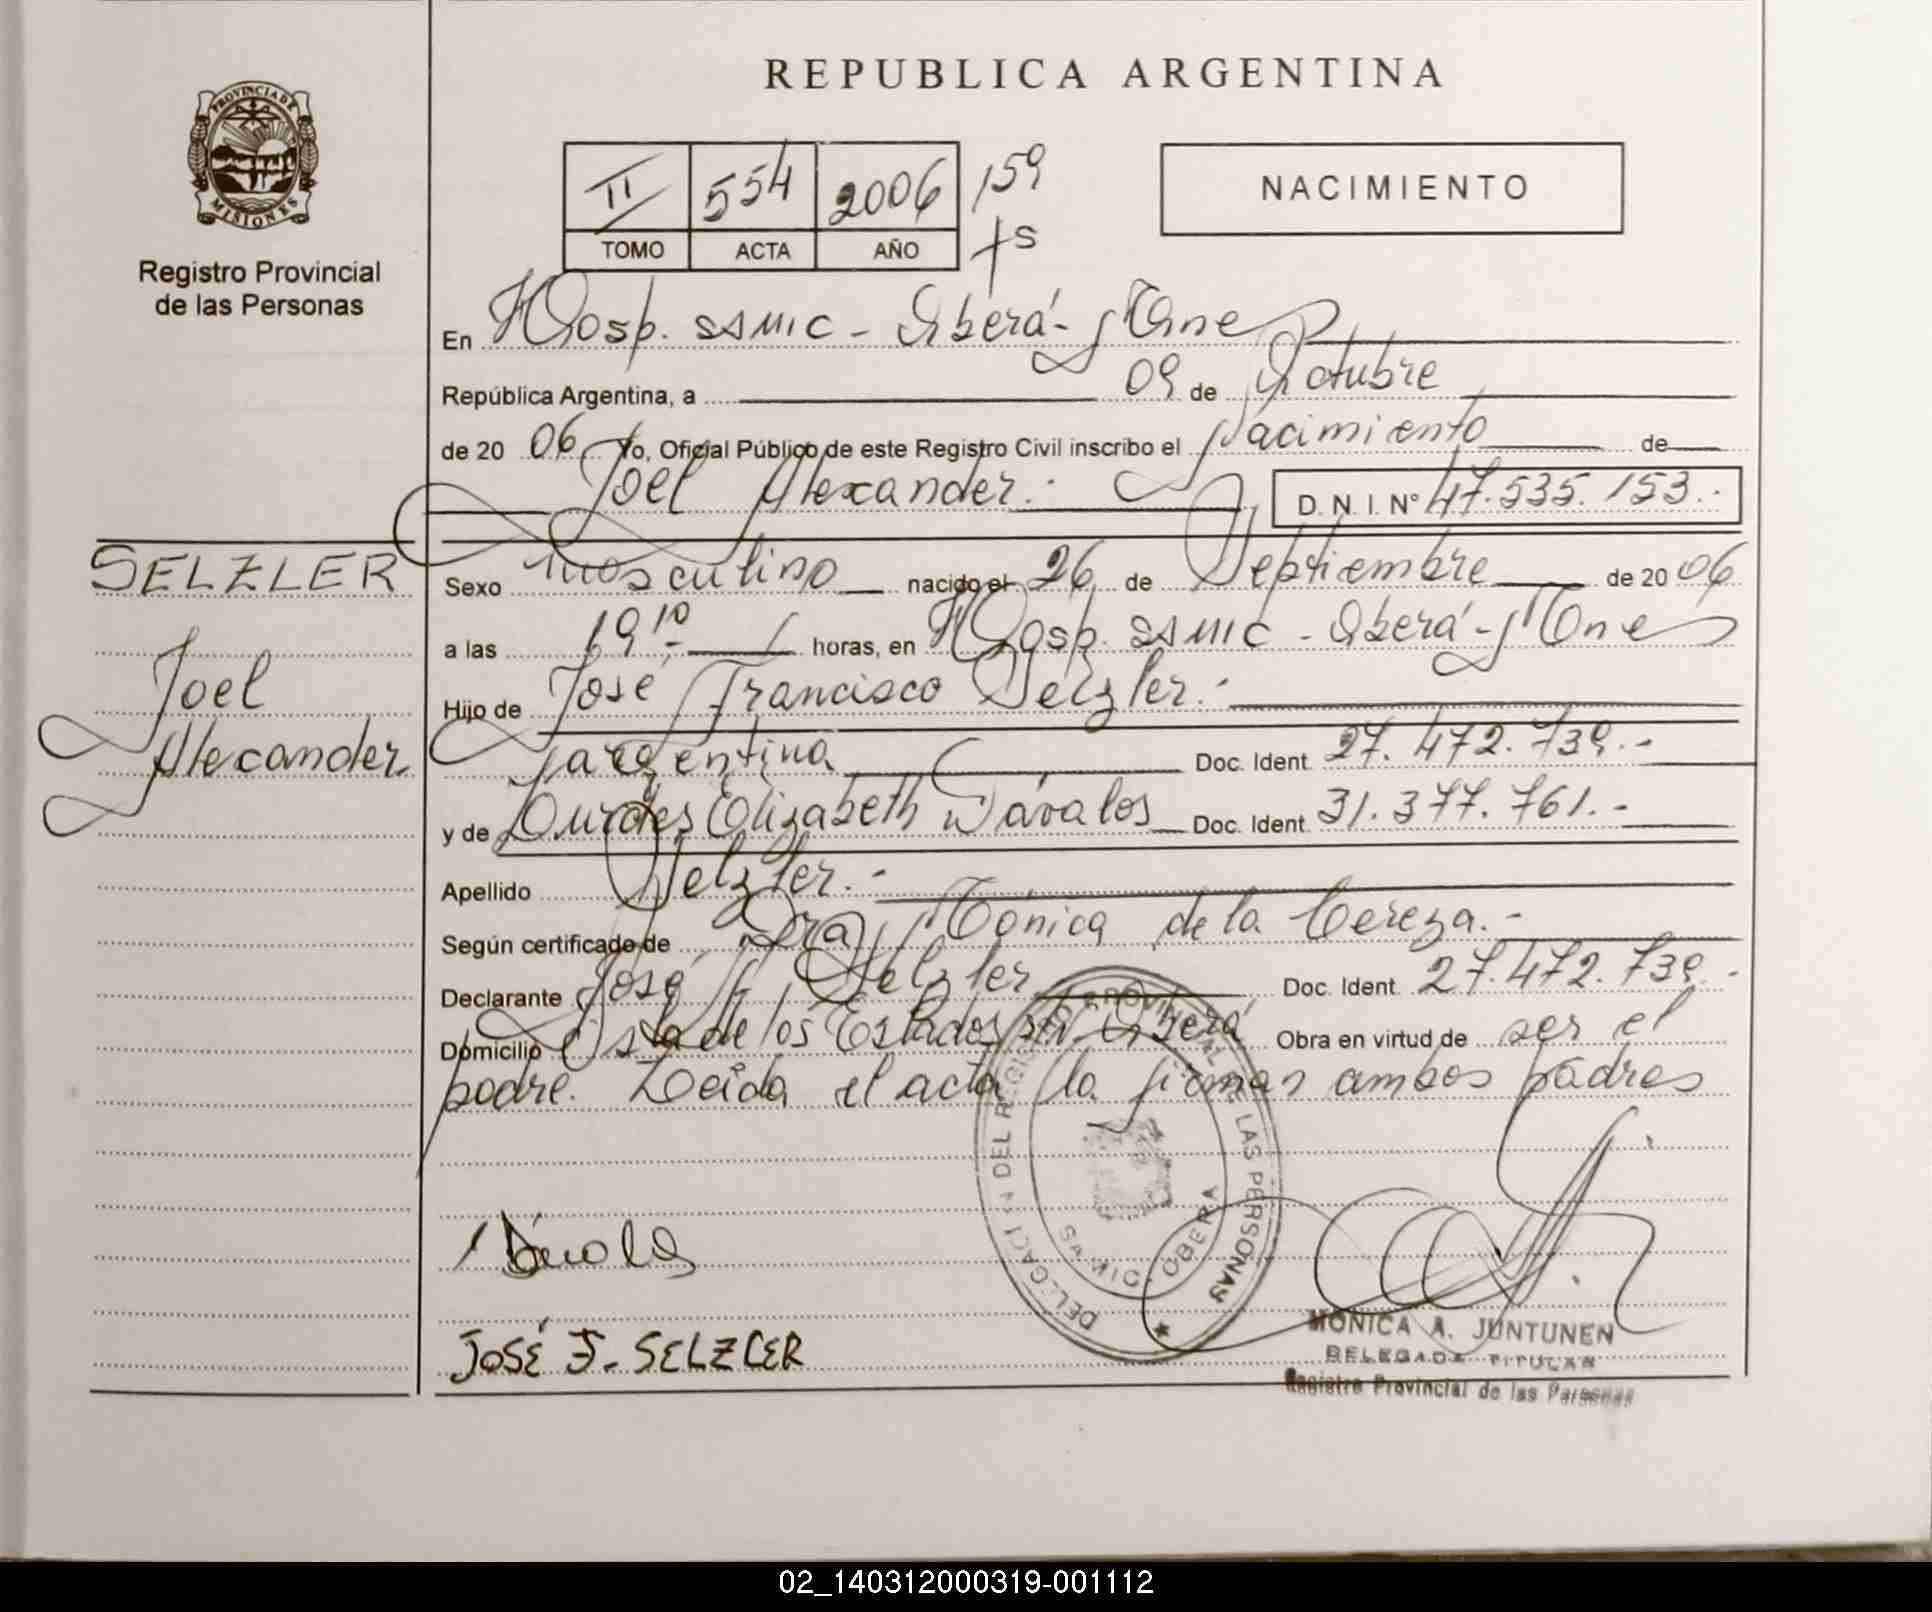 REPUBLICA ARGENTINA
PROVINCIA DE
MISIONES
Registro Provincial
de las Personas
II 554 2006 159
TOMO ACTA AÑO fs
NACIMIENTO
En Hosp. SAMIC - Oberá - Mnes
República Argentina, a 09 de Octubre
de 20 06 Yo, Oficial Público de este Registro Civil inscribo el Nacimiento de
Joel Alexander.- D. N. I. Nº 47.535.153.-
SELZLER
Joel
Alexander
Sexo masculino nacido el 26 de Septiembre de 20 06
a las 19 10 horas, en Hosp. SAMIC - Oberá - Mnes
Hijo de José Francisco Selzler.-
argentina Doc. Ident. 27.472.739.-
y de Lourdes Elizabeth Dávalos Doc. Ident. 31.377.761.-
Apellido Selzler.-
Según certificado de Dra Mónica de la Cereza.-
Declarante José F Selzler Doc. Ident. 27.472.739.-
Domicilio Isla de los Estados s/n Oberá Obra en virtud de ser el
padre. Leída el acta la firman ambos padres
DELEGACION DEL REGISTRO PROVINCIAL DE LAS PERSONAS
SAMIC - OBERA
JOSÉ F. SELZLER
MONICA A. JUNTUNEN
DELEGADA TITULAR
Registro Provincial de las Personas
02_140312000319-001112